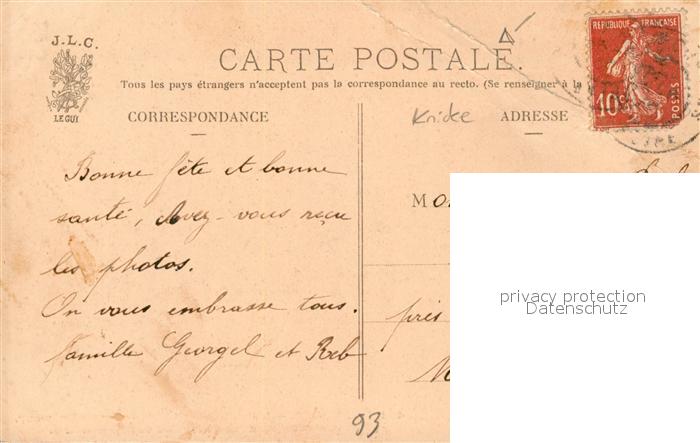 J.L.C.
LE GUI
CARTE POSTALE.
Tous les pays étrangers n'acceptent pas la correspondance au recto. (Se renseigner à la
CORRESPONDANCE
Knicke
ADRESSE
REPUBLIQUE FRANÇAISE
10c
POSTES
Bonne fête et bonne
santé, Avez-vous reçu
les photos.
On vous embrasse tous.
famille Georgel et Reb
Mo
près
privacy protection
Datenschutz
93